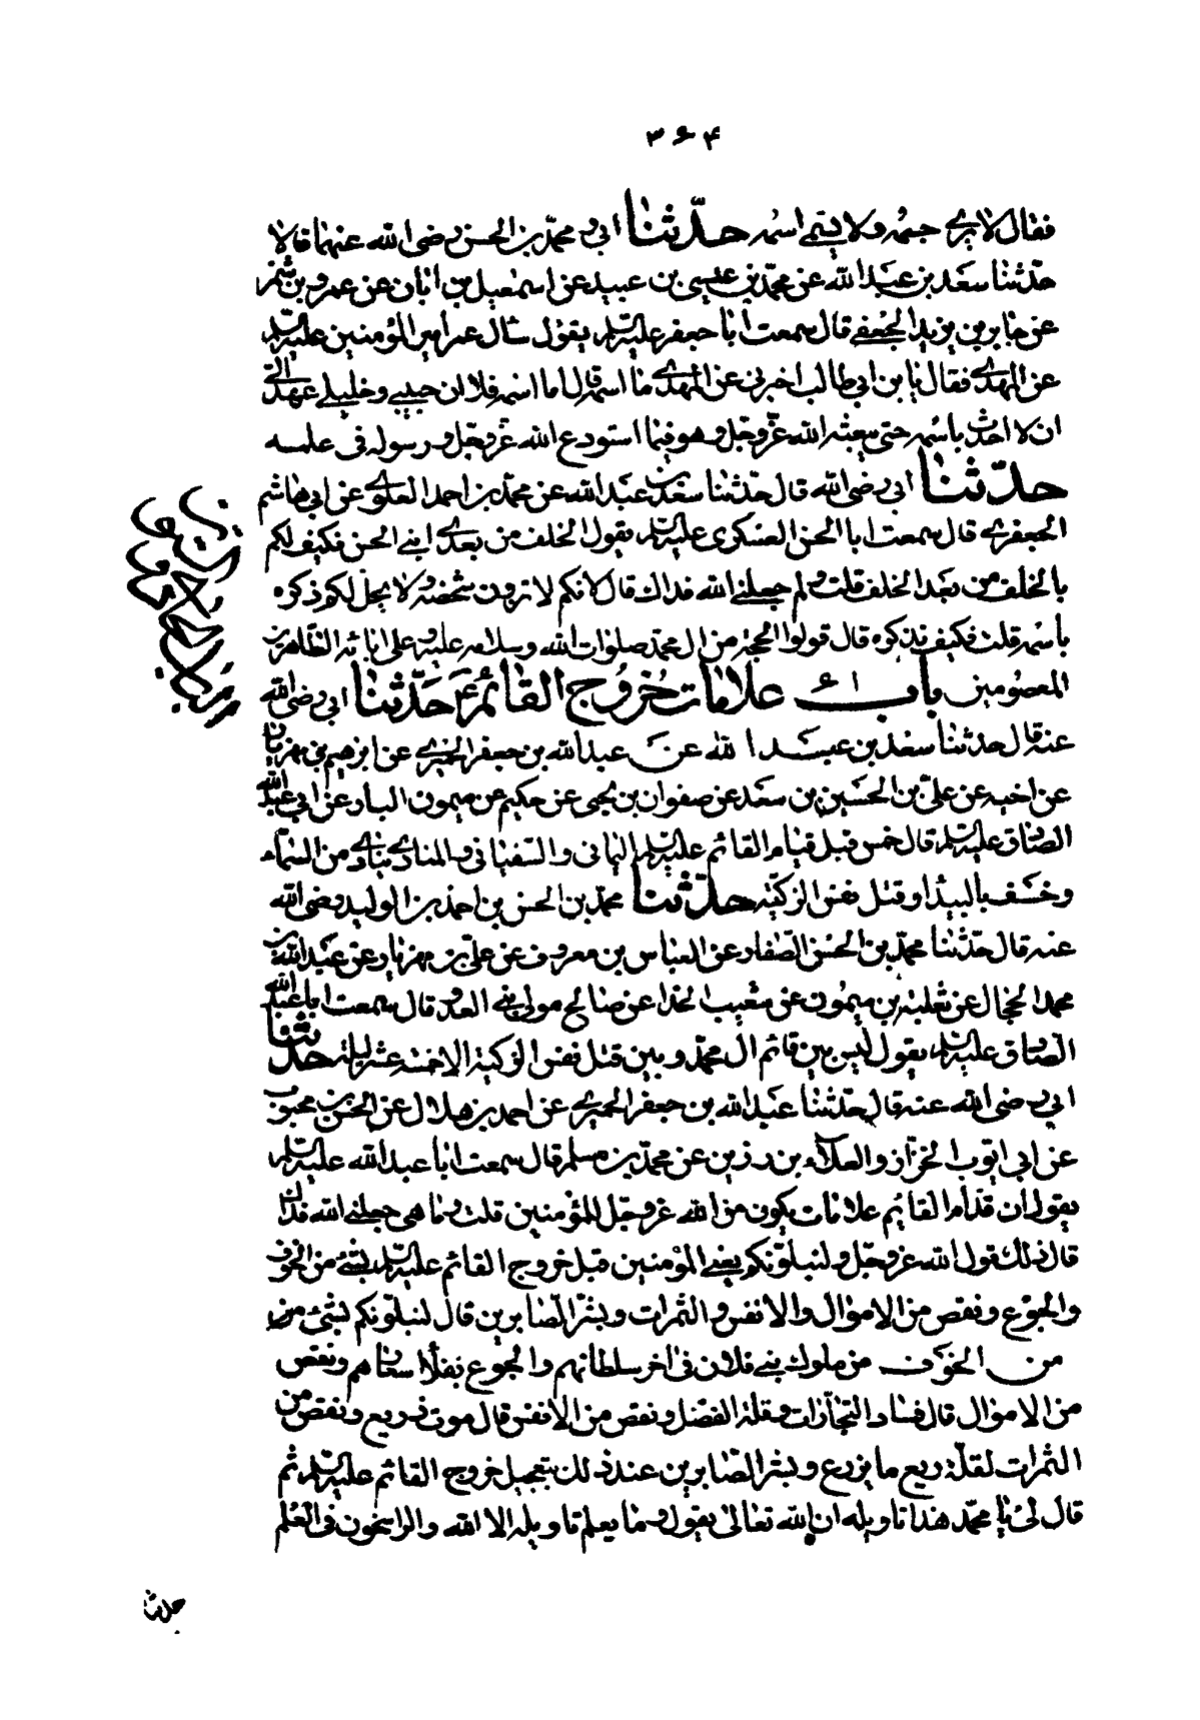 ۳۶۴
فقال لا يرى جسمه ولا يسمى اسمه حدثنا ابى ومحمد بن الحسن رضى الله عنهما قالا
حدثنا سعد بن عبد الله عن محمد بن عيسى بن عبيد عن اسمعيل بن ابان عن عمرو بن شمر
عن جابر بن يزيد الجعفى قال سمعت ابا جعفر عليه السلم يقول سئال عمر امير المؤمنين عليه السلم
عن المهدى فقال يا بن ابى طالب اخبرنى عن المهدى ما اسمه قال اما اسمه فلا ان حبيبى وخليلى عهد الى
ان لا احدث باسمه حتى يبعثه الله عز وجل وهو فيما استودع الله عز وجل ورسوله فى علمه
حدثنا ابى رضى الله قال حدثنا سعد بن عبد الله عن محمد بن احمد العلوى عن ابى هاشم
الجعفرى قال سمعت ابا الحسن العسكرى عليه السلم يقول الخلف من بعدى ابنى الحسن فكيف لكم
بالخلف من بعد الخلف قلت ولم جعلنى الله فداك قال لانكم لا ترون شخصه ولا يحل لكم ذكره
باسمه قلت فكيف نذكره قال قولوا الحجة من ال محمد صلوات الله وسلامه عليه وعلى ابائه الطاهرين
المعصومين باب ۶۱ علامات خروج القائم ع حدثنا ابى رضى الله
عنه قال حدثنا سعد بن عبد الله عن عبد الله بن جعفر الحميرى عن ابرهيم بن مهزيار
عن اخيه عن على بن الحسين بن سعد عن صفوان بن يحيى عن حكيم عن ميمون البان عن ابى عبد الله
الصادق عليه السلم قال خمس قبل قيام القائم عليه السلم اليمانى والسفيانى والمنادى ينادى من السماء
وخسف بالبيداء وقتل نفس الزكية حدثنا محمد بن الحسن بن احمد بن الوليد رضى الله
عنه قال حدثنا محمد بن الحسن الصفار عن العباس بن معروف عن على بن مهزيار عن عبد الله بن
محمد الحجال عن ثعلبة بن ميمون عن شعيب الحذا عن صالح مولى بنى العذرا قال سمعت ابا عبد الله
الصادق عليه السلم يقول ليس بين قائم ال محمد وبين قتل نفس الزكية الا خمسة عشر ليلة حدثنا
ابى رضى الله عنه قال حدثنا عبد الله بن جعفر الحميرى عن احمد بن هلال عن الحسن بن محبوب
عن ابى ايوب الخزاز والعلاء بن رزين عن محمد بن مسلم قال سمعت ابا عبد الله عليه السلم
يقول ان قدام القائم علامات يكون من الله عز وجل للمؤمنين قلت وما هى جعلنى الله فداك
قال ذلك قول الله عز وجل ولنبلونكم يعنى المؤمنين قبل خروج القائم عليه السلم بشئ من الخوف
والجوع ونقص من الاموال والانفس والثمرات وبشر الصابرين قال لنبلونكم بشئ من
من الخوف من ملوك بنى فلان فى اخر سلطانهم والجوع بغلاء اسعارهم ونقص
من الاموال قال فساد التجارات وقلة الفضل ونقص من الانفس قال موت ذريع ونقص من
الثمرات لقلة ريع ما يزرع وبشر الصابرين عند ذلك بتعجيل خروج القائم عليه السلم ثم
قال لى يا محمد هذا تاويله ان الله تعالى يقول وما يعلم تاويله الا الله والراسخون فى العلم
حدثنا